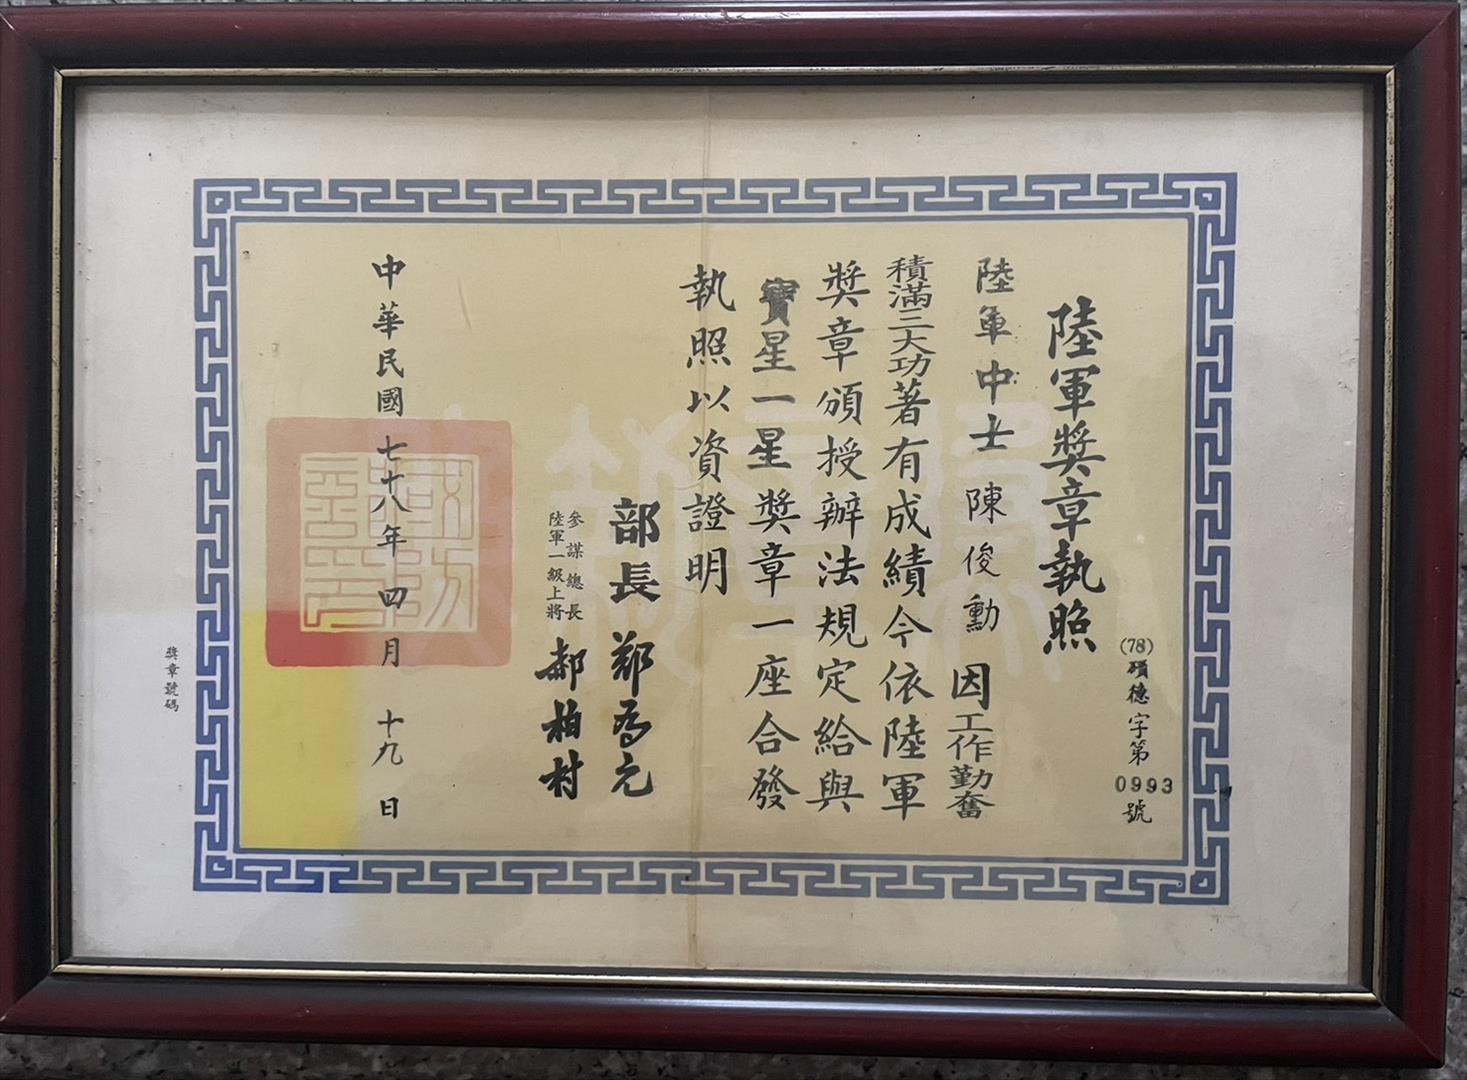 陸軍獎章執照
(78)碩德字第0993號
陸軍中士 陳俊勳 因工作勤奮
積滿三大功著有成績今依陸軍
獎章頒授辦法規定給與
寶星一星獎章一座合發
執照以資證明
部長 鄭為元
參謀總長
陸軍一級上將
郝柏村
中華民國七十八年四月十九日
獎章號碼